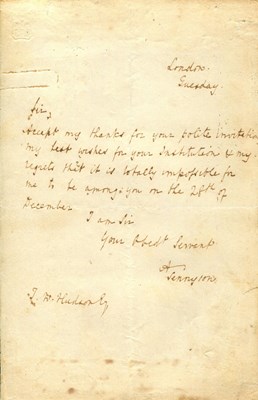 London.
Tuesday.
Sir,
Accept my thanks for your polite Invitation
my best wishes for your Institution & my
regrets that it is totally impossible for
me to be amongs you on the 28th of
December
I am Sir
Your Obedt Servant
A Tennyson
W. Hudson Esq